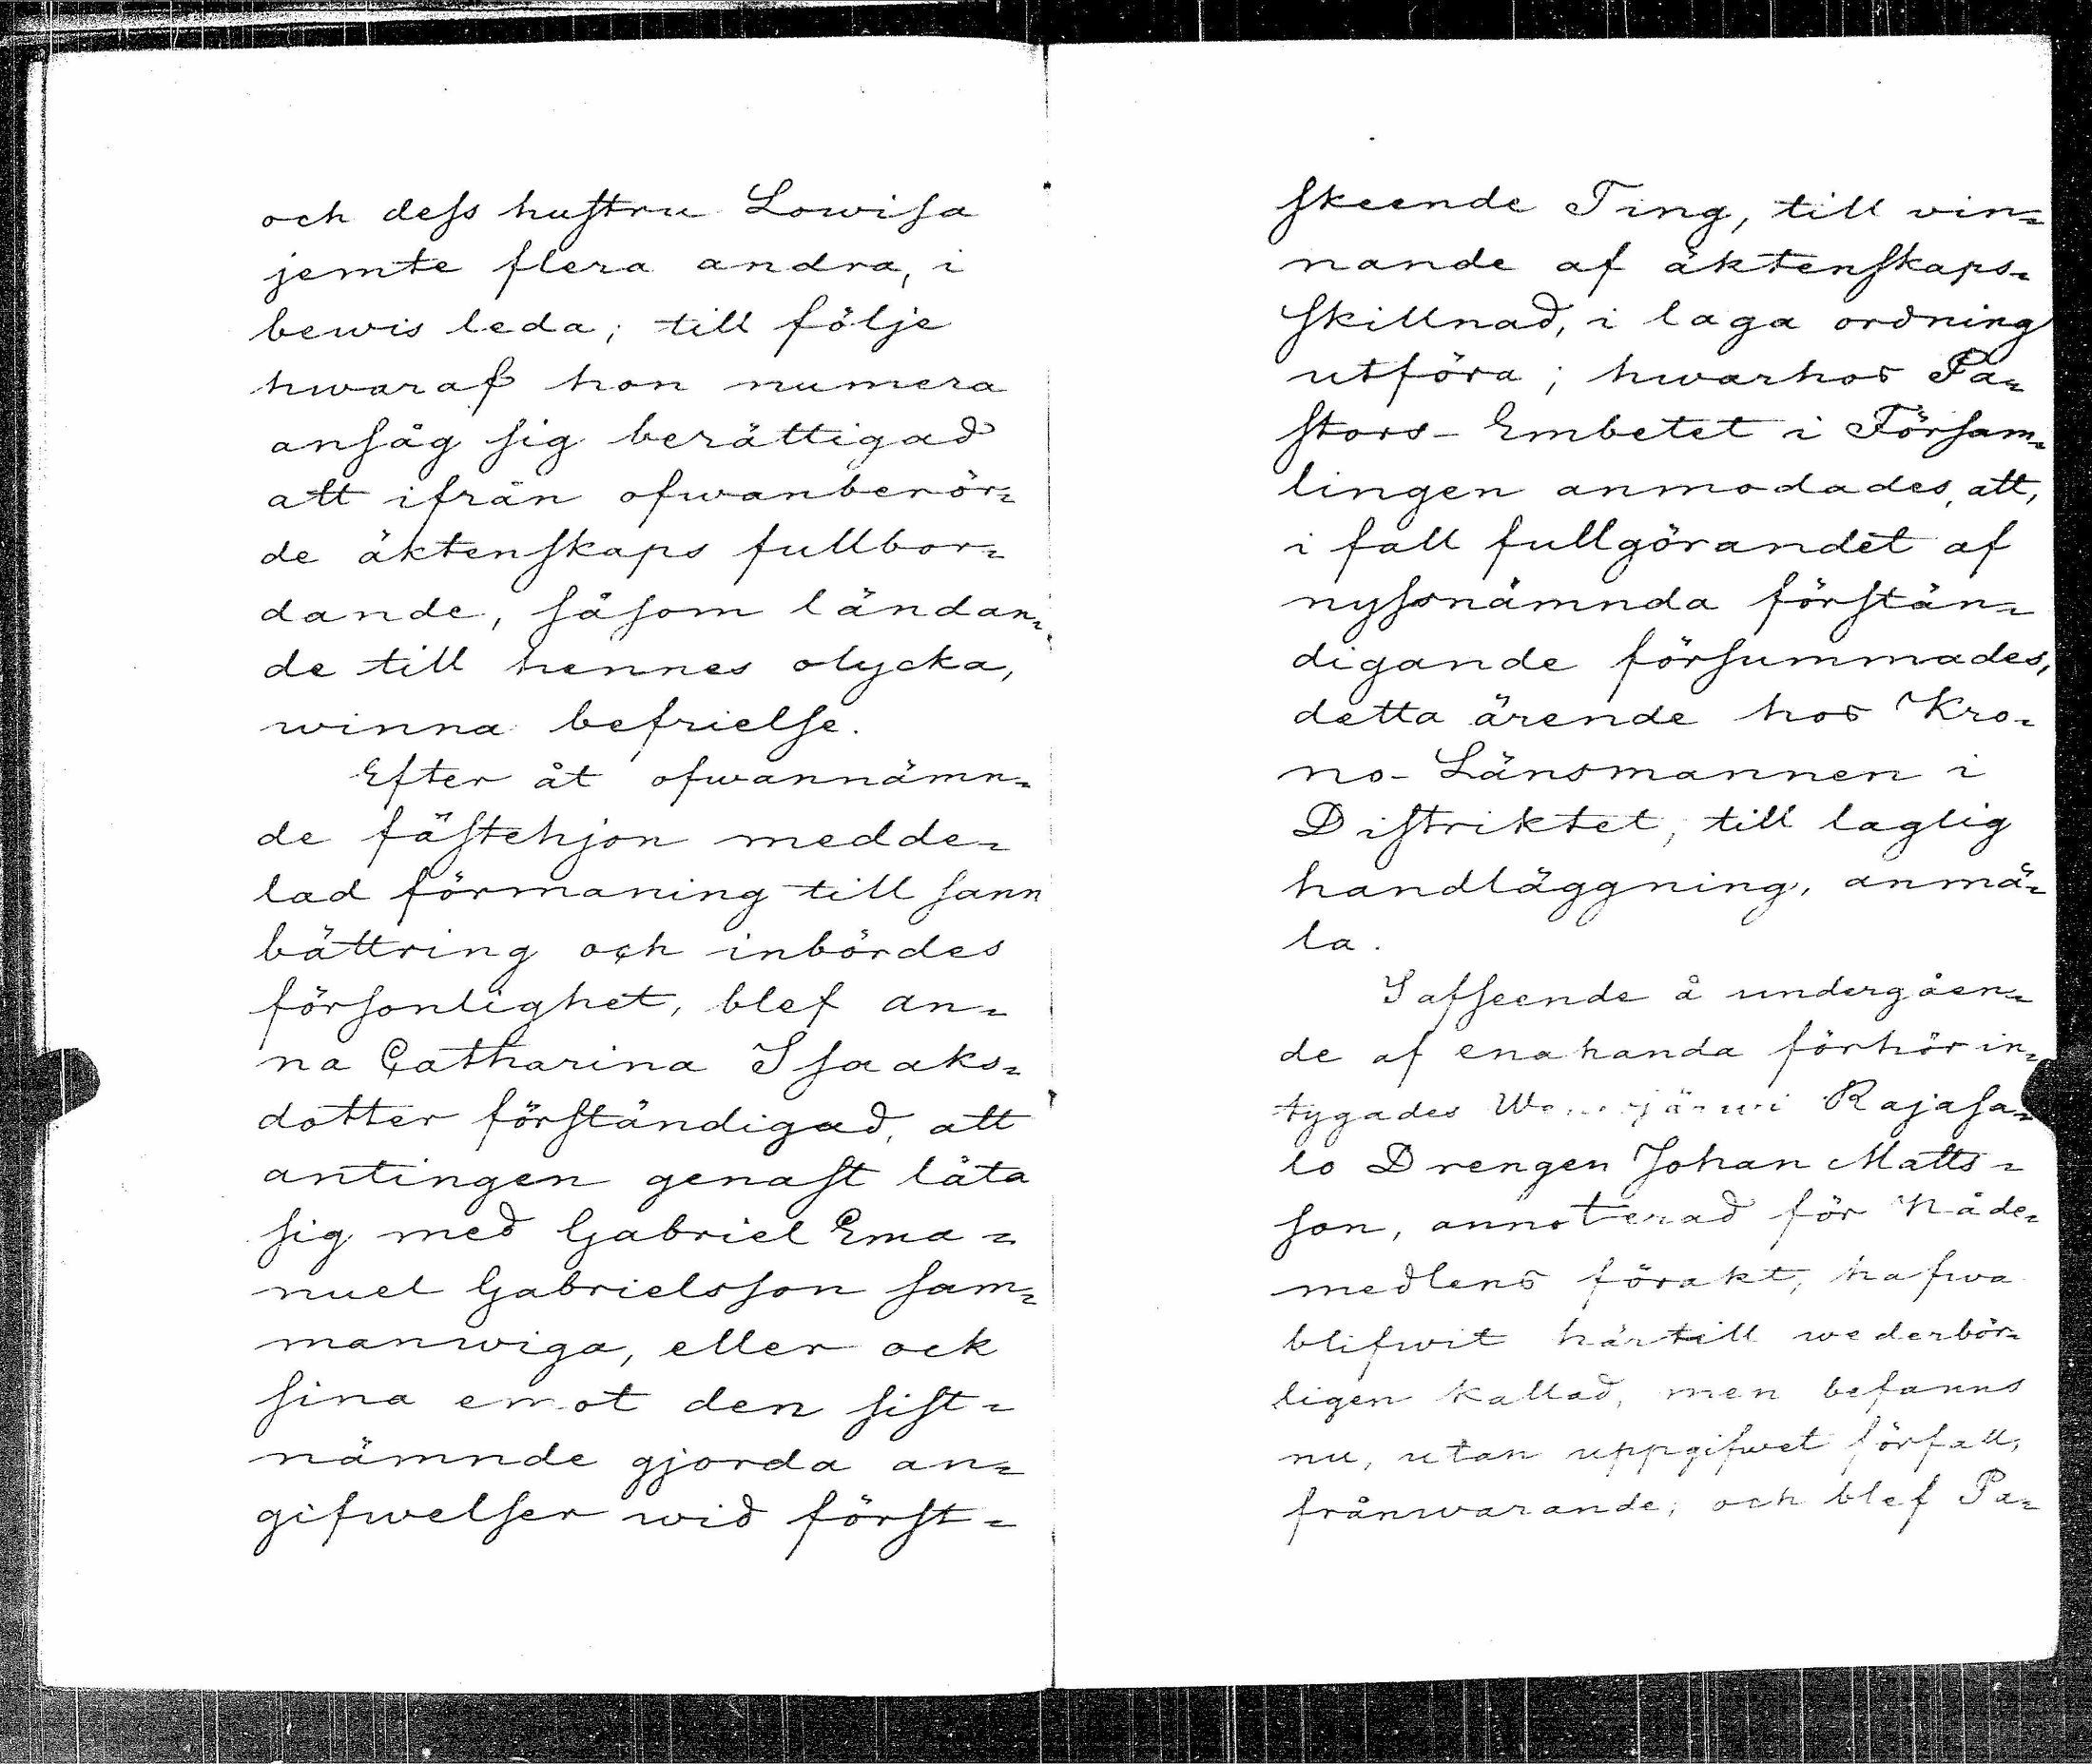 och dess hustru Lowisa
jemte flera andra, i
bewis leda; till följe
hwaraf hon numera
ansåg sig berättigad
att ifrån ofwanberör=
de äktenskaps fullbor=
dande, såsom ländan=
de till hennes olycka,
winna befrielse.
Efter åt ofwannämn=
de fästehjon medde=
lad förmaning till sann
bättring och inbördes
försonlighet, blef an=
na Catharina Isaaks=
dotter förständigad, att
antingen genast låta
sig med Gabriel Ema=
nuel Gabrielsson sam=
manwiga, eller ock
sina emot den sist=
nämnde gjorda an=
gifwelser wid först=
skeende Ting, till vin=
nande af äktenskaps=
skillnad, i laga ordning
utföra; hwarhos Pa=
stors-Embetet i Försam=
lingen anmodades, att,
i fall fullgörandet af
nyssnämnda förstän=
digande försummades,
detta ärende hos Kro=
no-Länsmannen i
Distriktet, till laglig
handläggning, anmä=
la.
I afseende å undergåen=
de af enahanda förhör in=
tygades Rajasa=
lo Drengen Johan Matts=
son, annoterad för Nåde=
medlens förakt, hafwa
blifwit härtill wederbör=
ligen kallad, men befanns
nu, utan uppgifwet förfall,
frånwarande; och blef Pa=